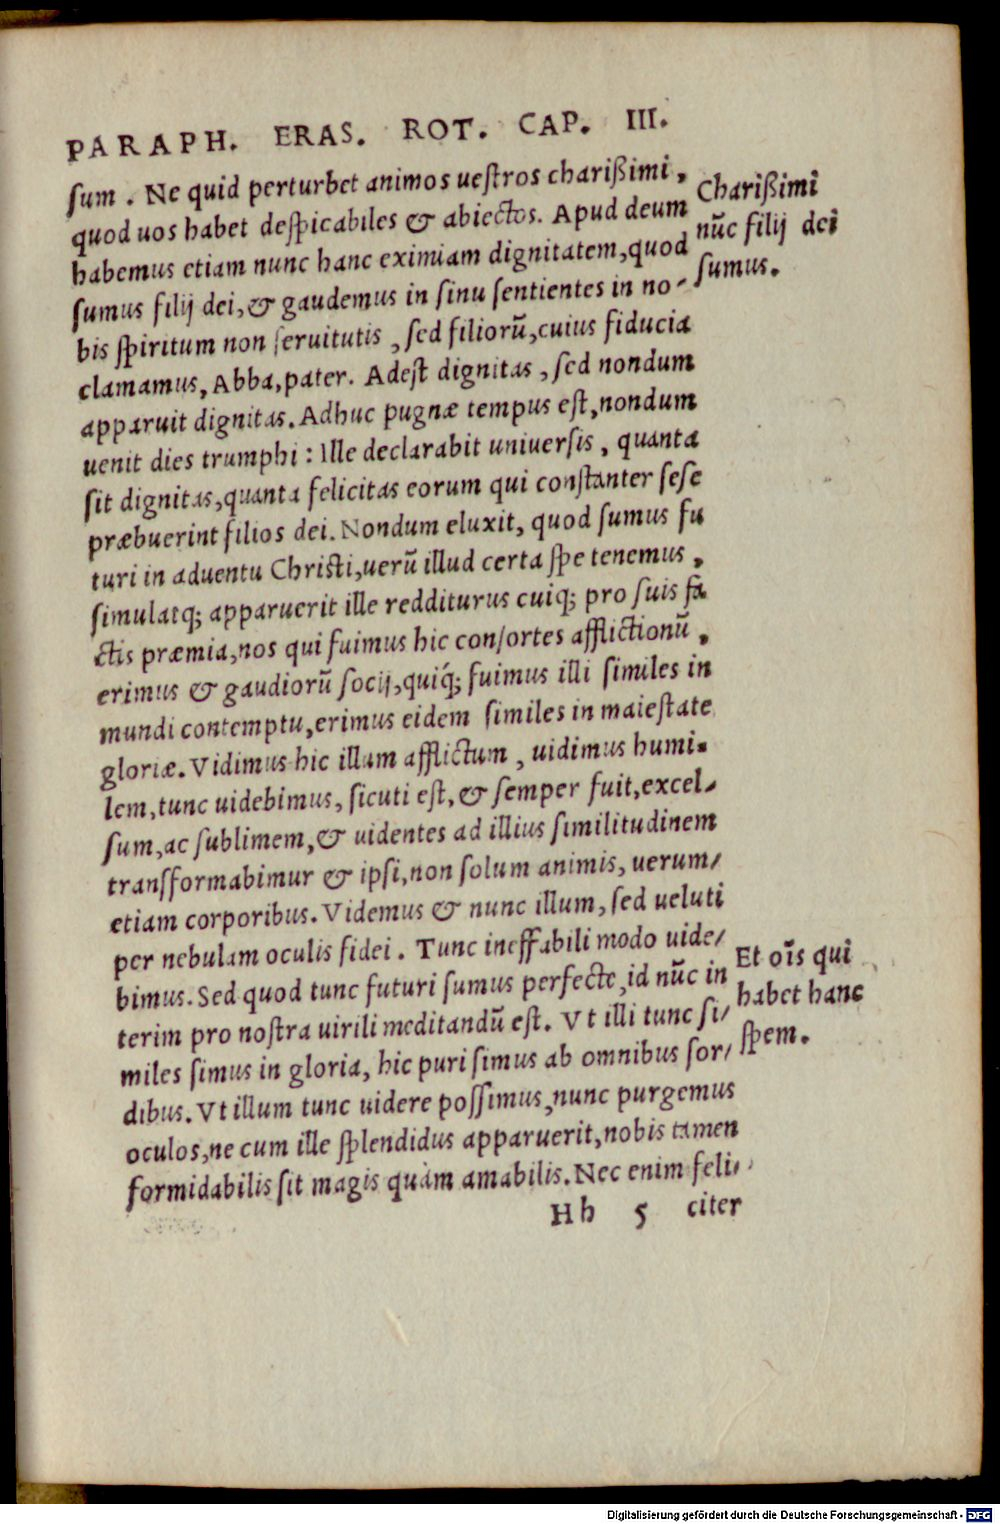 PARAPH. ERAS. ROT. CAP. III.
ſum . Ne quid perturbet animos ueſtros charißimi ,
quod uos habet deſpicabiles & abiectos. Apud deum
habemus etiam nunc hanc eximiam dignitatem,quod
ſumus filij dei,& gaudemus in ſinu ſentientes in no-
bis ſpiritum non ſeruitutis , ſed filiorū,cuius fiducia
clamamus, Abba,pater. Adeſt dignitas , ſed nondum
apparuit dignitas. Adhuc pugnæ tempus eſt,nondum
uenit dies trumphi : Ille declarabit uniuerſis , quanta
ſit dignitas,quanta felicitas eorum qui conſtanter ſeſe
præbuerint filios dei. Nondum eluxit, quod ſumus fu
turi in aduentu Chriſti,uerū illud certa ſpe tenemus ,
ſimulatq; apparuerit ille redditurus cuiq; pro ſuis fa
ctis præmia,nos qui fuimus hic conſortes afflictionū ,
erimus & gaudiorū ſocij,quiq́; fuimus illi ſimiles in
mundi contemptu,erimus eidem ſimiles in maieſtate
gloriæ. Vidimus hic illum afflictum , uidimus humi-
lem,tunc uidebimus, ſicuti eſt,& ſemper fuit,excel-
ſum,ac ſublimem,& uidentes ad illius ſimilitudinem
transſformabimur & ipſi,non ſolum animis, uerum-
etiam corporibus. Videmus & nunc illum, ſed ueluti
per nebulam oculis fidei . Tunc ineffabili modo uide-
bimus. Sed quod tunc futuri ſumus perfecte,id nūc in
terim pro noſtra uirili meditandū eſt. Vt illi tunc ſi-
miles ſimus in gloria, hic puri ſimus ab omnibus ſor-
dibus. Vt illum tunc uidere poſſimus,nunc purgemus
oculos,ne cum ille ſplendidus apparuerit,nobis tamen
formidabilis ſit magis quàm amabilis. Nec enim feli-
Hh 5 citer
Charißimi
nūc filij dei
ſumus.
Et oīs qui
habet hanc
ſpem.
Digitalisierung gefördert durch die Deutsche Forschungsgemeinschaft - DFG